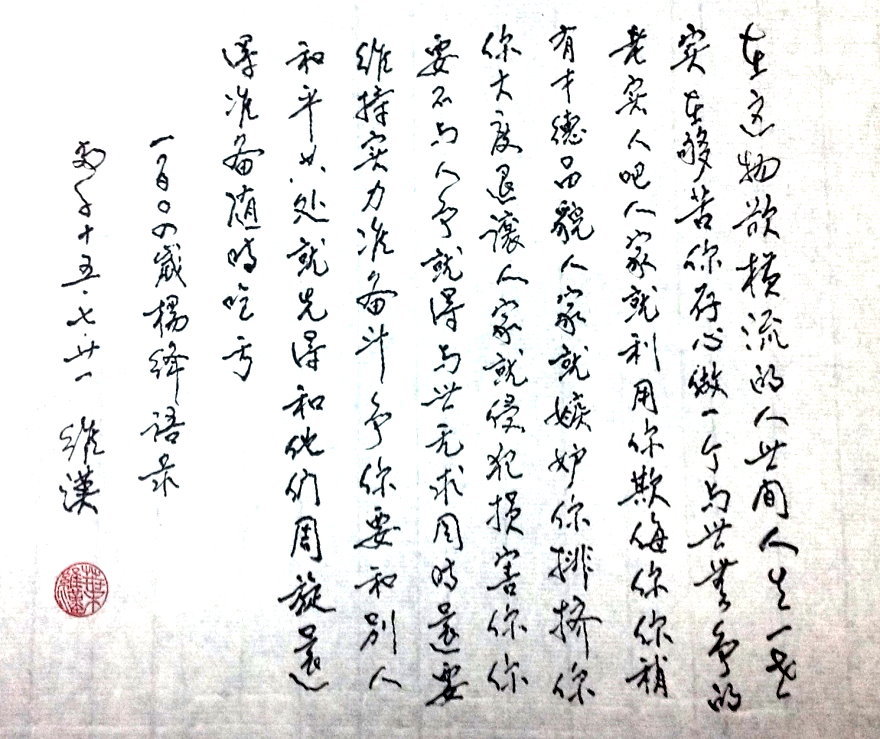 在这物欲横流的人世间人生一世
实在够苦你存心做一个与世无争的
老实人吧人家就利用你欺侮你你稍
有才德品貌人家就嫉妒你排挤你
你大度退讓人家就侵犯损害你你
要不与人争就得与世无求同时還要
維持实力准备斗争你要和别人
和平共处就先得和他们周旋還
得准备随時吃亏
一百〇四歲楊绛语录
丙子十五·七·廿一 维漢
葉維漢